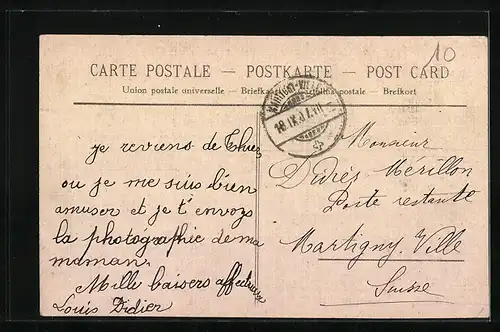 10
CARTE POSTALE — POSTKARTE — POST CARD
Union postale universelle — postale — Brefkort
MARTIGNY-VILLE
18.IX.07.
je reviens de
ou je me suis bien
amuser et je t'envoye
la photographie de ma
maman.
Mille baisers affectueux
Louis Didier
Monsieur
Merillon
Poste restante
Martigny. Ville
Suisse